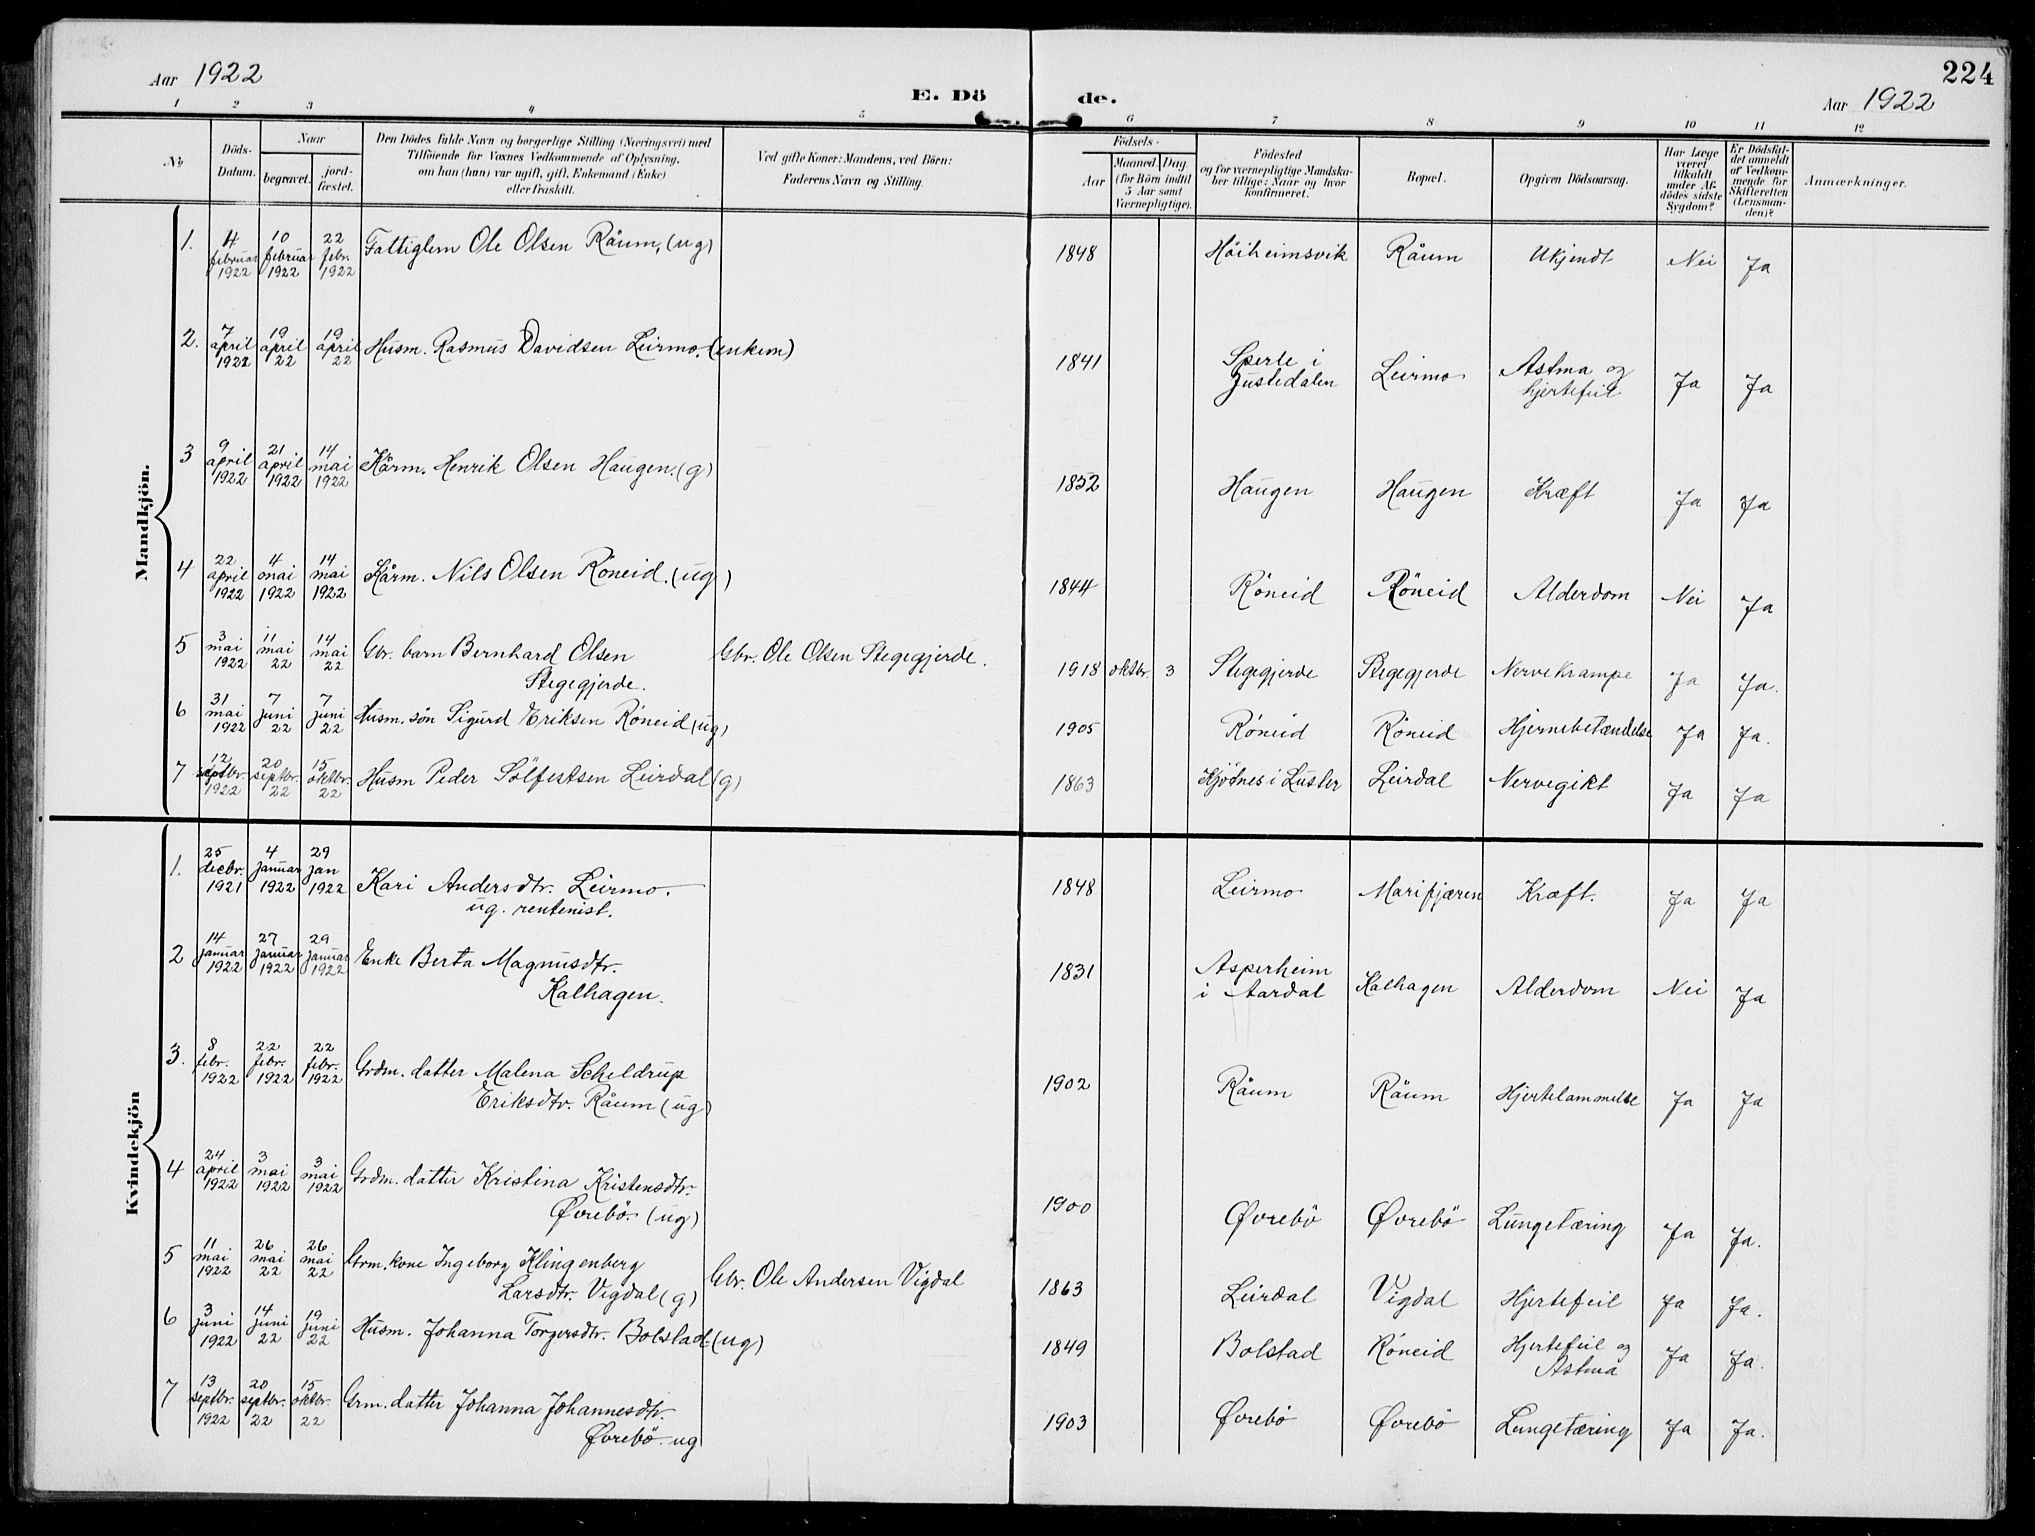 224
Aar 1922
E. Dö de.
Aar 1922
1 2 3 4 5 6 7 8 9 10 11 12
No
Döds-Datum.
Naar
begravet.
jord-fæstet.
Den Dödes fulde Navn og borgerlige Stilling (Næringsvei) med
Tilföiende for Voxnes Vedkommende af Oplysning,
om han (hun) var ugift, gift, Enkemand (Enke)
eller fraskilt.
Ved gifte Koner: Mandens, ved Börn:
Faderens Navn og Stilling.
Födsels-
Aar
Maaned. Dag.
(for Börn indtil
5 Aar samt
Værnepligtige).
Födested
og for værnepligtige Mandska-
ber tillige: Naar og hvor
konfirmeret.
Bopæl.
Opgiven Dödsaarsag.
Har Læge
været
tilkaldt
under Af-
dödes sidste
Sygdom?
Er Dödsfal-
det anmeldt
af Vedkom-
mende for
Skifteretten
(Lensman-
den)?
Anmærkninger.
Mandkjön.
1. 4 februar 1922 10 februar 1922 22 febr. 1922 Fattiglem Ole Olsen Råum, (ug) 1848 Höiheimsvik Råum Ukjendt Nei Ja
2. 7 april 1922 19 april 22 19 april 22 Husm. Rasmus Davidsen Leirmo. (enkem) 1841 Sperle i Justedalen Leirmo Astma og hjertefeil Ja Ja
3 9 april 1922 21 april 1922 14 mai 1922 Kårm. Henrik Olsen Haugen. (g) 1852 Haugen Haugen Kræft Ja Ja
4 22 april 1922 4 mai 1922 14 mai 1922 Kårm. Nils Olsen Röneid. (ug) 1844 Röneid Röneid Alderdom Nei Ja
5 3 mai 1922 11 mai 22 14 mai 22 Gbr. barn Bernhard Olsen Stegegjerde. Gbr. Ole Olsen Stegegjerde. 1918 oktbr. 3 Stegegjerde Stegegjerde Nervekrampe Ja Ja.
6 31 mai 1922 7 juni 22 7 juni 22 Husm. sön Sigurd Eriksen Röneid (ug) 1905 Röneid Röneid Hjernebetændelse Ja Ja.
7 12 septbr. 1922 20 septbr. 22 15 oktbr. 22 Husm Peder Sölfestsen Leirdal (g) 1863 Kjötnes i Luster Leirdal Nervegikt Ja Ja
Kvindekjön
1. 25 decbr. 1921 4 januar 1922 29 jan 1922 Kari Andersdtr. Leirmo. ug. rentenist. 1848 Leirmo Marifjæren Kræft. Ja Ja
2 14 januar 1922 27 januar 1922 29 januar 1922 Enke Berta Magnusdtr. Kalhagen. 1831 Asperheim i Aardal Kalhagen Alderdom Nei Ja
3. 8 febr. 1922 22 febr. 1922 22 febr. 1922 Grdm. datter Malena Scheldrup Eriksdtr. Råum (ug) 1902 Råum Råum Hjertelammelse Ja Ja
4 24 april 1922 3 mai 1922 3 mai 1922 Grdm. datter Kristina Kristensdtr. Øvrebö. (ug) 1900 Øvrebö Øvrebö Lungetæring Ja Ja.
5 11 mai 1922 26 mai 22 26 mai 22 Grm. kone Ingeborg Klingenberg Larsdtr. Vigdal (g) Gbr. Ole Andersen Vigdal 1863 Leirdal Vigdal Hjertefeil Ja Ja.
6 3 juni 1922 14 juni 22 19 juni 22 Husm. Johanna Torgersdtr. Bolstad (ug) 1849 Bolstad Röneid Hjertefeil og Astma Ja Ja.
7 13 septbr. 1922 20 septbr. 22 15 oktbr. 22 Grm. datter Johanna Johannesdtr. Øvrebö. ug 1903 Øvrebö Øvrebö Lungetæring Ja Ja.